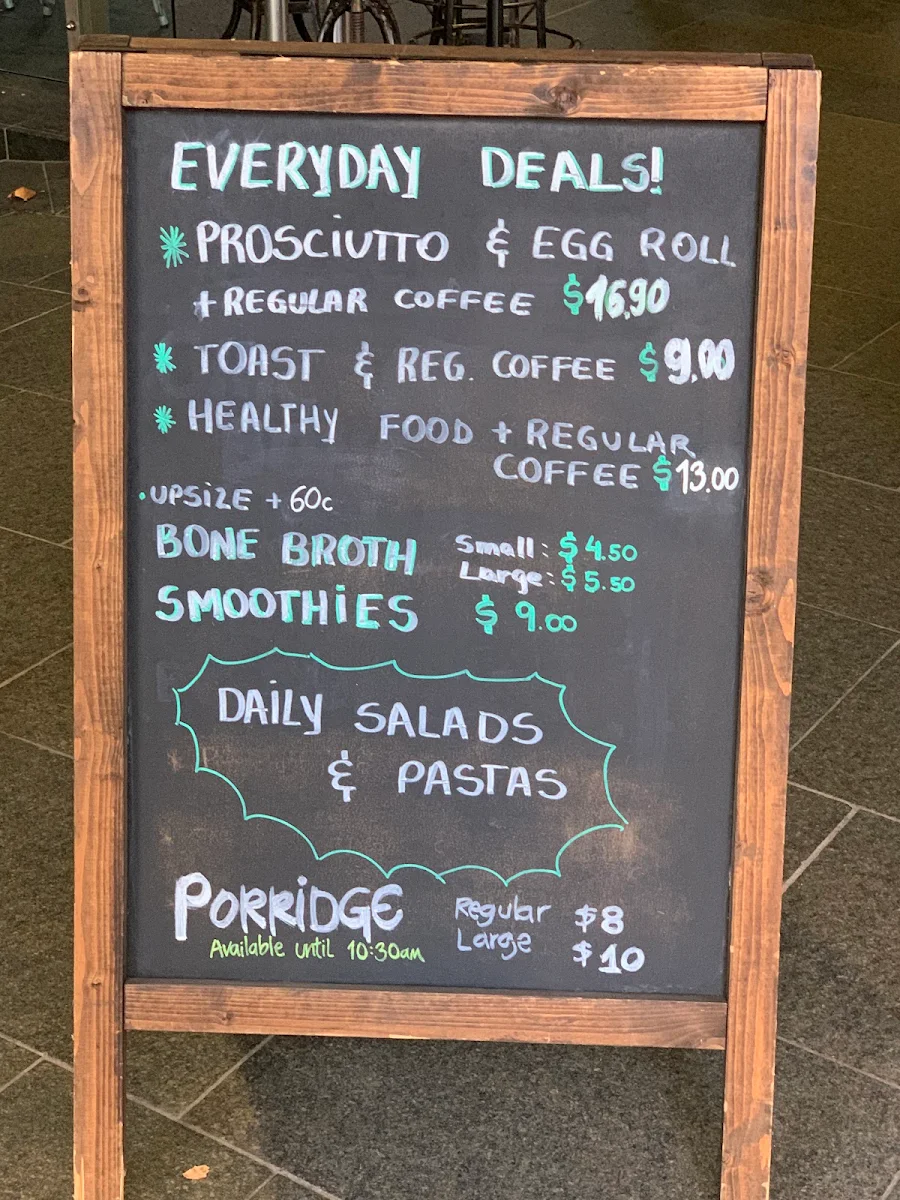 EVERYDAY DEALS!
* PROSCIUTTO & EGG ROLL
+ REGULAR COFFEE $16.90
* TOAST & REG. COFFEE $9.00
* HEALTHY FOOD + REGULAR
COFFEE $13.00
• UPSIZE + 60c
BONE BROTH Small: $4.50
Large: $5.50
SMOOTHIES $9.00
DAILY SALADS
& PASTAS
PORRIDGE Regular $8
Available until 10:30am Large $10